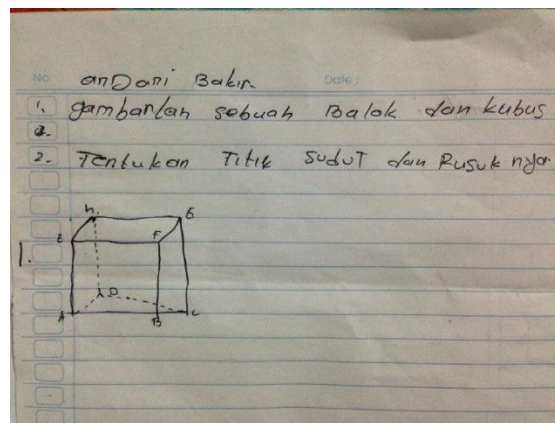 No
Date :
anDani Bakir
1. gambarlah sebuah Balok dan kubus
2.
2. Tentukan Titik SuduT dan Rusuk nya
H. G
E F
1.
D
A B C